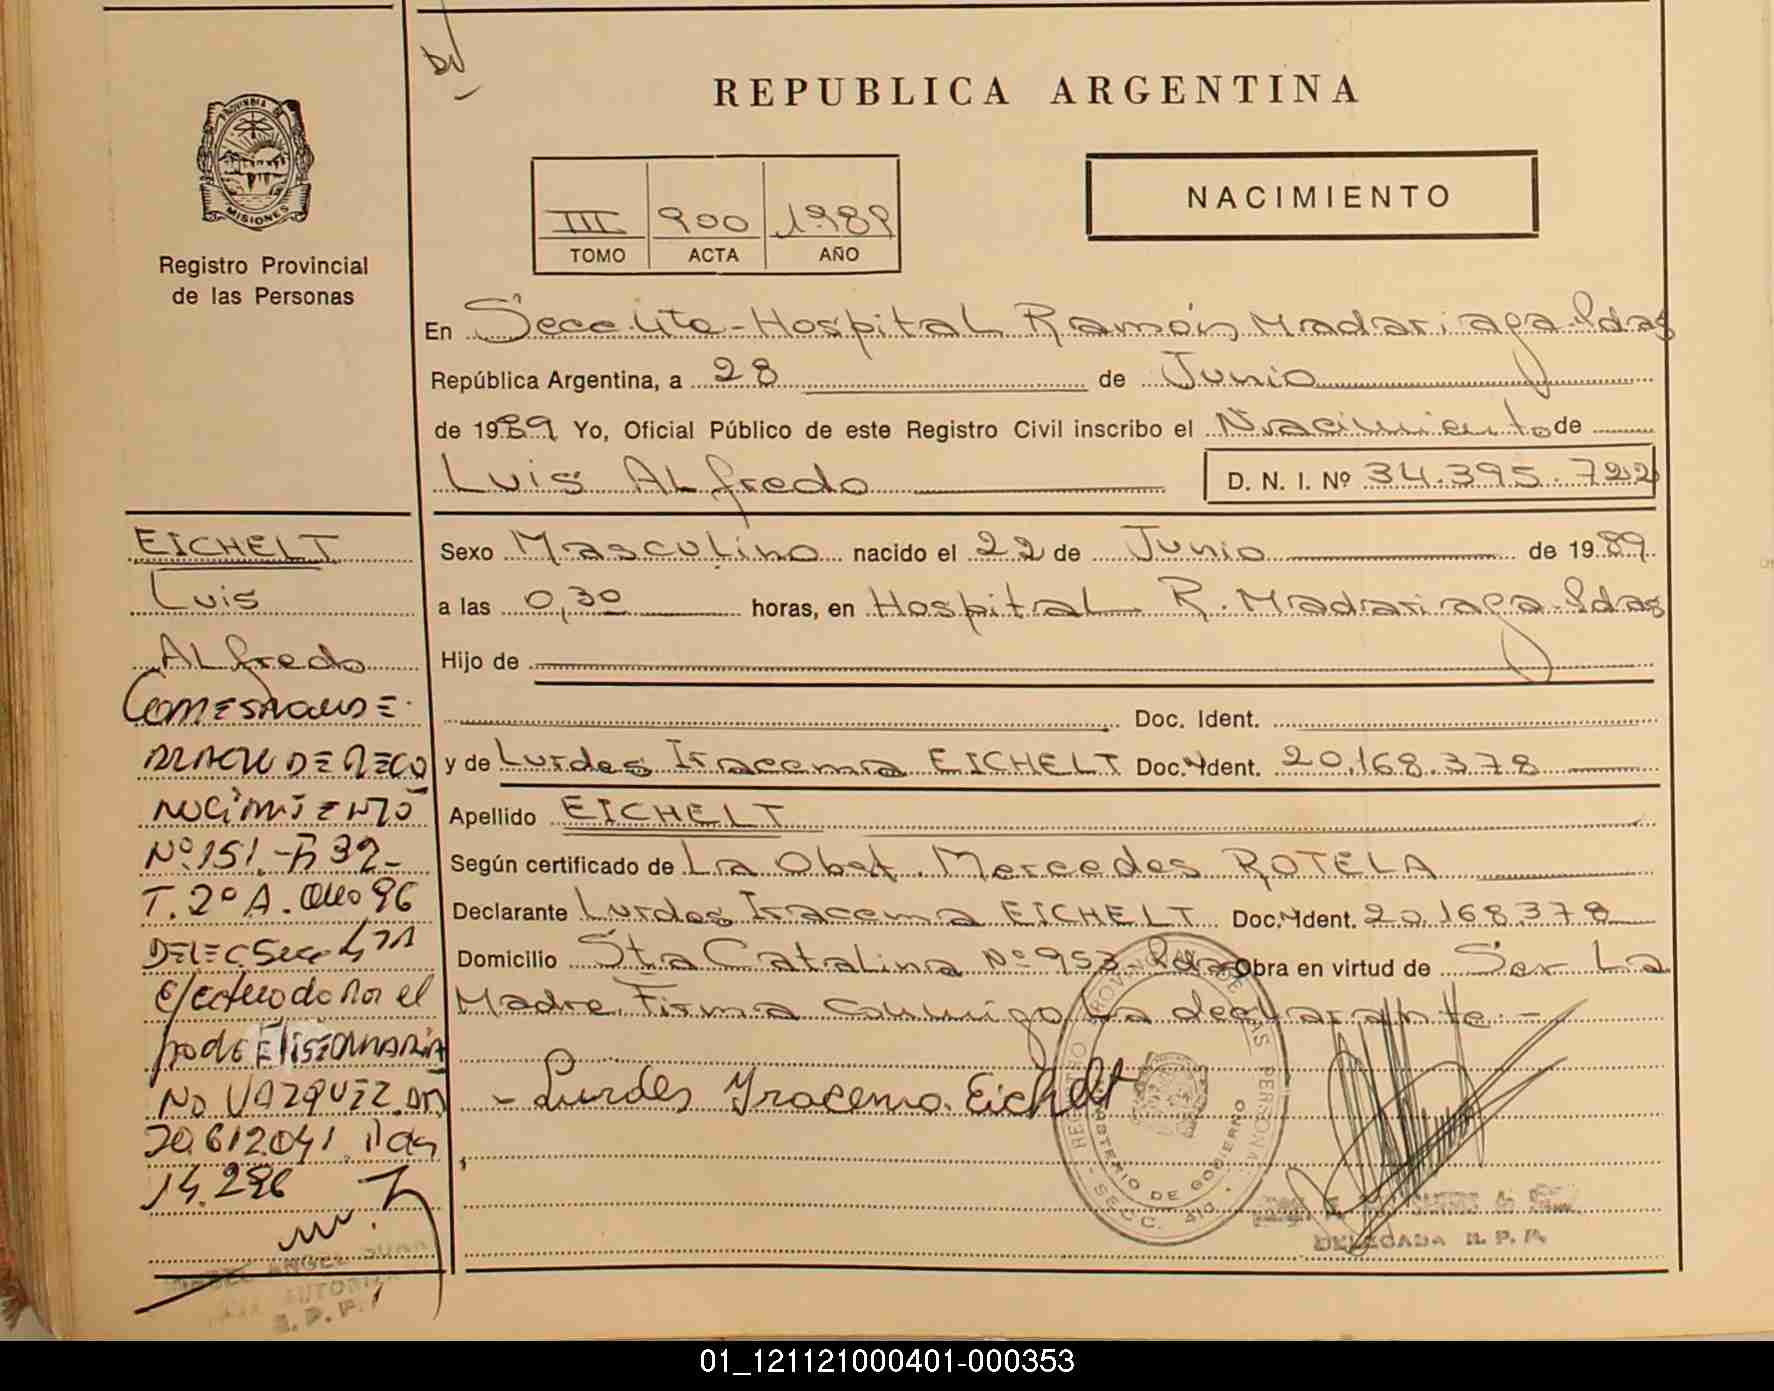 DV
REPUBLICA ARGENTINA
PROVINCIA DE
MISIONES
Registro Provincial
de las Personas
III 900 1989
TOMO ACTA AÑO
NACIMIENTO
En Secc. 4ta - Hospital Ramón Madariaga - Pdas
República Argentina, a 28 de Junio
de 1989 Yo, Oficial Público de este Registro Civil inscribo el Nacimiento de
Luis Alfredo D. N. I. Nº 34.395.722
Sexo Masculino nacido el 22 de Junio de 1989
a las 0,30 horas, en Hospital R. Madariaga - Pdas
Hijo de
Doc. Ident.
y de Lurdes Iracema EICHELT Doc. Ident. 20.168.378
Apellido EICHELT
Según certificado de La Obst. Mercedes ROTELA
Declarante Lurdes Iracema EICHELT Doc. Ident. 20.168.378
Domicilio Sta Catalina Nº 953 - Pdas Obra en virtud de Ser La
Madre. Firma conmigo La declarante. -
- Lurdes Iracema Eichelt
REGISTRO PROVINCIAL DE LAS PERSONAS
MINISTERIO DE GOBIERNO
- SECC. 4ta -
DELEGADA R. P. P.
EICHELT
Luis
Alfredo
CORRESPONDE
ACTA DE RECO
NOCIMIENTO
Nº 151 - Fº 32 -
T. 2º A. Año 96
DELEG. Secc 4ta
efectuado por el
padre
NO VAZQUEZ. DNI
20.612.041. Pdas
14.2.96
ANGEL
AUTORIZA
R. P. P.
01_121121000401-000353